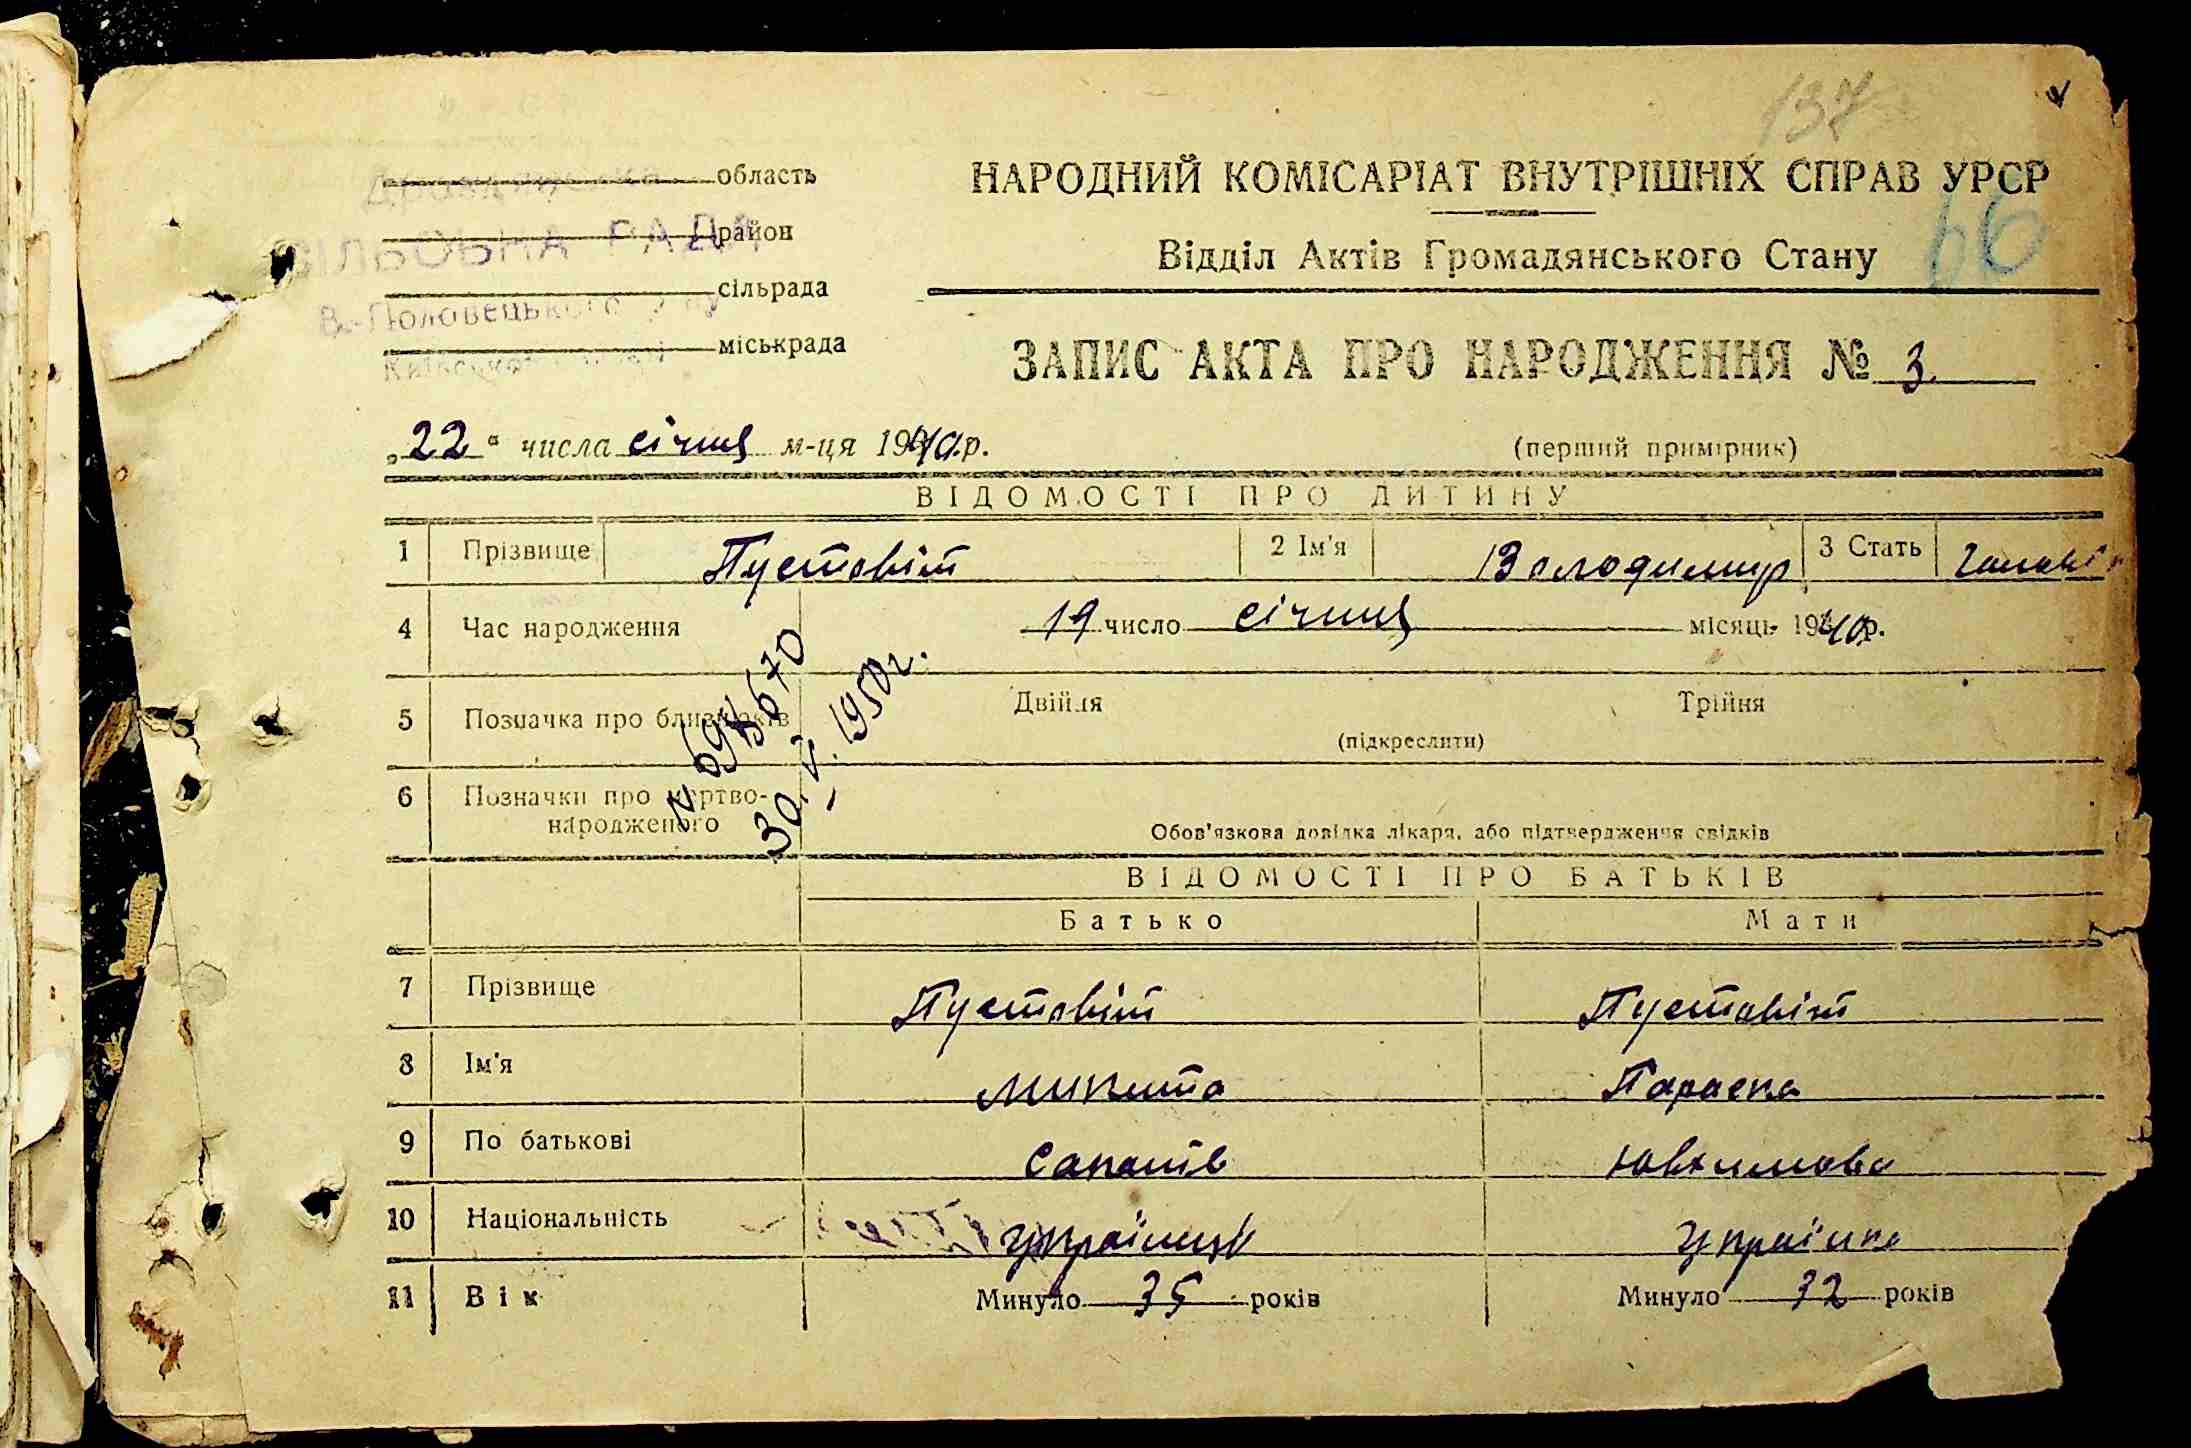 137
область
НАРОДНИЙ КОМІСАРІАТ ВНУТРІШНІХ СПРАВ УРСР
СІЛЬСЬКА РАДА
район
66
Відділ Актів Громадянського Стану
сільрада
В.-Половецького
міськрада
ЗАПИС АКТА ПРО НАРОДЖЕННЯ № 3
„22“ числа січня м-ця 1940 р.
(перший примірник)
ВІДОМОСТІ ПРО ДИТИНУ
1 Прізвище Пустовіт 2 Ім'я Володимир 3 Стать
4 Час народження 19 число січня місяць 1940 р.
5 Позначка про близнюків Двійля Трійня
(підкреслити)
6 Позначки про мертво-
народженого
Обов'язкова довідка лікаря, або підтвердження свідків
30. V. 1950 г.
ВІДОМОСТІ ПРО БАТЬКІВ
Батько Мати
7 Прізвище Пустовіт Пустовіт
8 Ім'я Микита Параска
9 По батькові Ювхимова
10 Національність українець українка
11 Вік Минуло 35 років Минуло 32 років